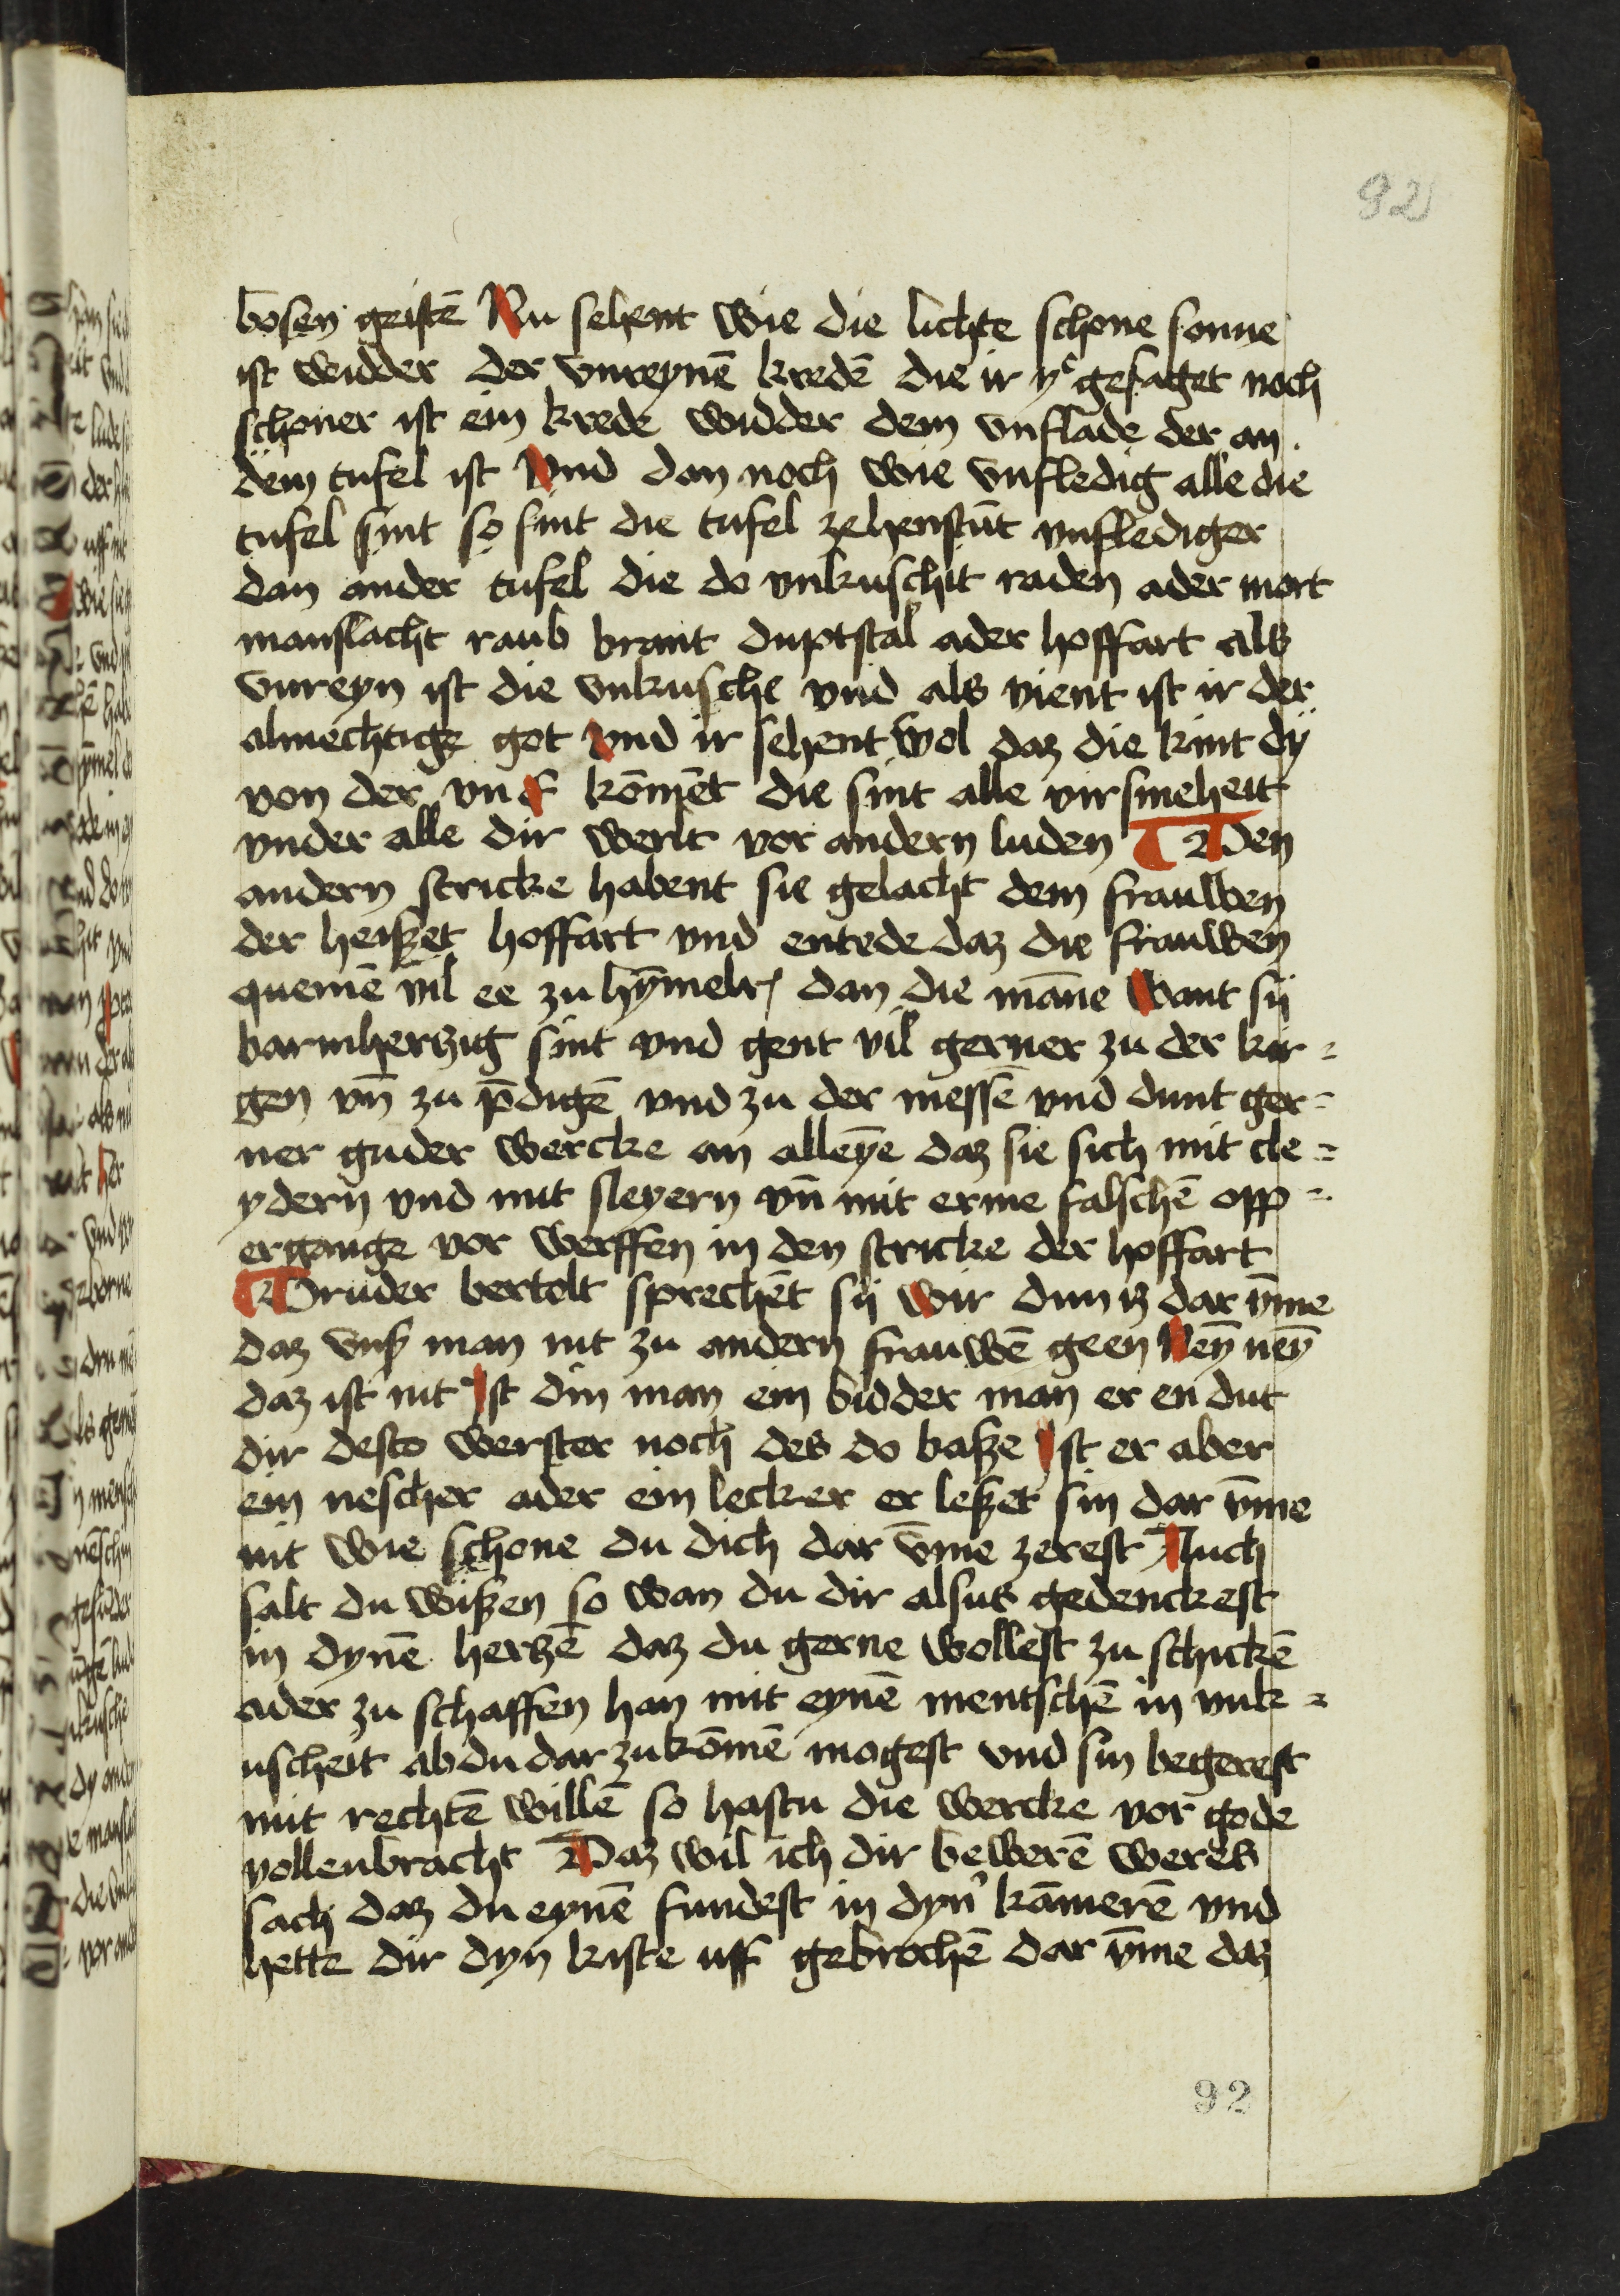 92
bosen geistē Nu sehent wie die lichte schone sonne
ist widder der vnreynē kredē die ir y͛ gesaget noch
schoner ist ein krede widder dem vnflade der an
dem tufel ist Vnd dan noch wie vnfledig alle die
tufel sint so sint die tufel zehenstūt vnflediger
dan ander tufel die do vnkuschit raden ader mort
manslacht raub brant duptstal ader hoffart als
vnreyn ist die vnkusche vnd als vient ist ir der
almechtige got vnd ir sehent wol daz die kint dÿ
von der kōmēt die sint alle virsmeheit
vnder alle dir werlt vor andern luden Den
andern stricke habent sie gelacht dem frauwen
der heißet hoffart vnd entede daz die frauwen
quemē vil ee zu hȳmelr dan die māne Want sij
barmherzig sint vnd gent vil gerner zu der kir=
gen vn̄ zu p̄digē vnd zu der messē vnd dunt ger=
ner guder wercke an alleȳe daz sie sich mit cle=
ydern vnd mit sleyern vn̄ mit erme falschē opp=
ergange vor werffen in den stricke der hoffart
Bruder bertolt sprechēt sij wir dun iz dar v̄me
daz vnß man nit zu andern frauwē geen Neȳ neȳ
daz ist nit Ist din man ein bidder man er en dut
dir desto werster noch des do baße Ist er aber
ein nescher ader ein lecker er leßet sin dar v̄me
nit wie schone du dich dar v̄me zerest Auch
salt du wißen so wan du dir alsus gedenckest
in dynē herzē daz du gerne wollest zu schickē
ader zu schaffen han mit eynē mentschē in vnk=
uscheit ab du dar zu kōmē mogest vnd sin begerest
mit rechtē willē so hastu die wercke vor gode
vollenbracht Daz wil ich dir bewerē weres
sach daz du eynē fundest in dyn͛ kāmerē vnd
hette dir dyn kiste uff gebrochē dar v̄me daz
92